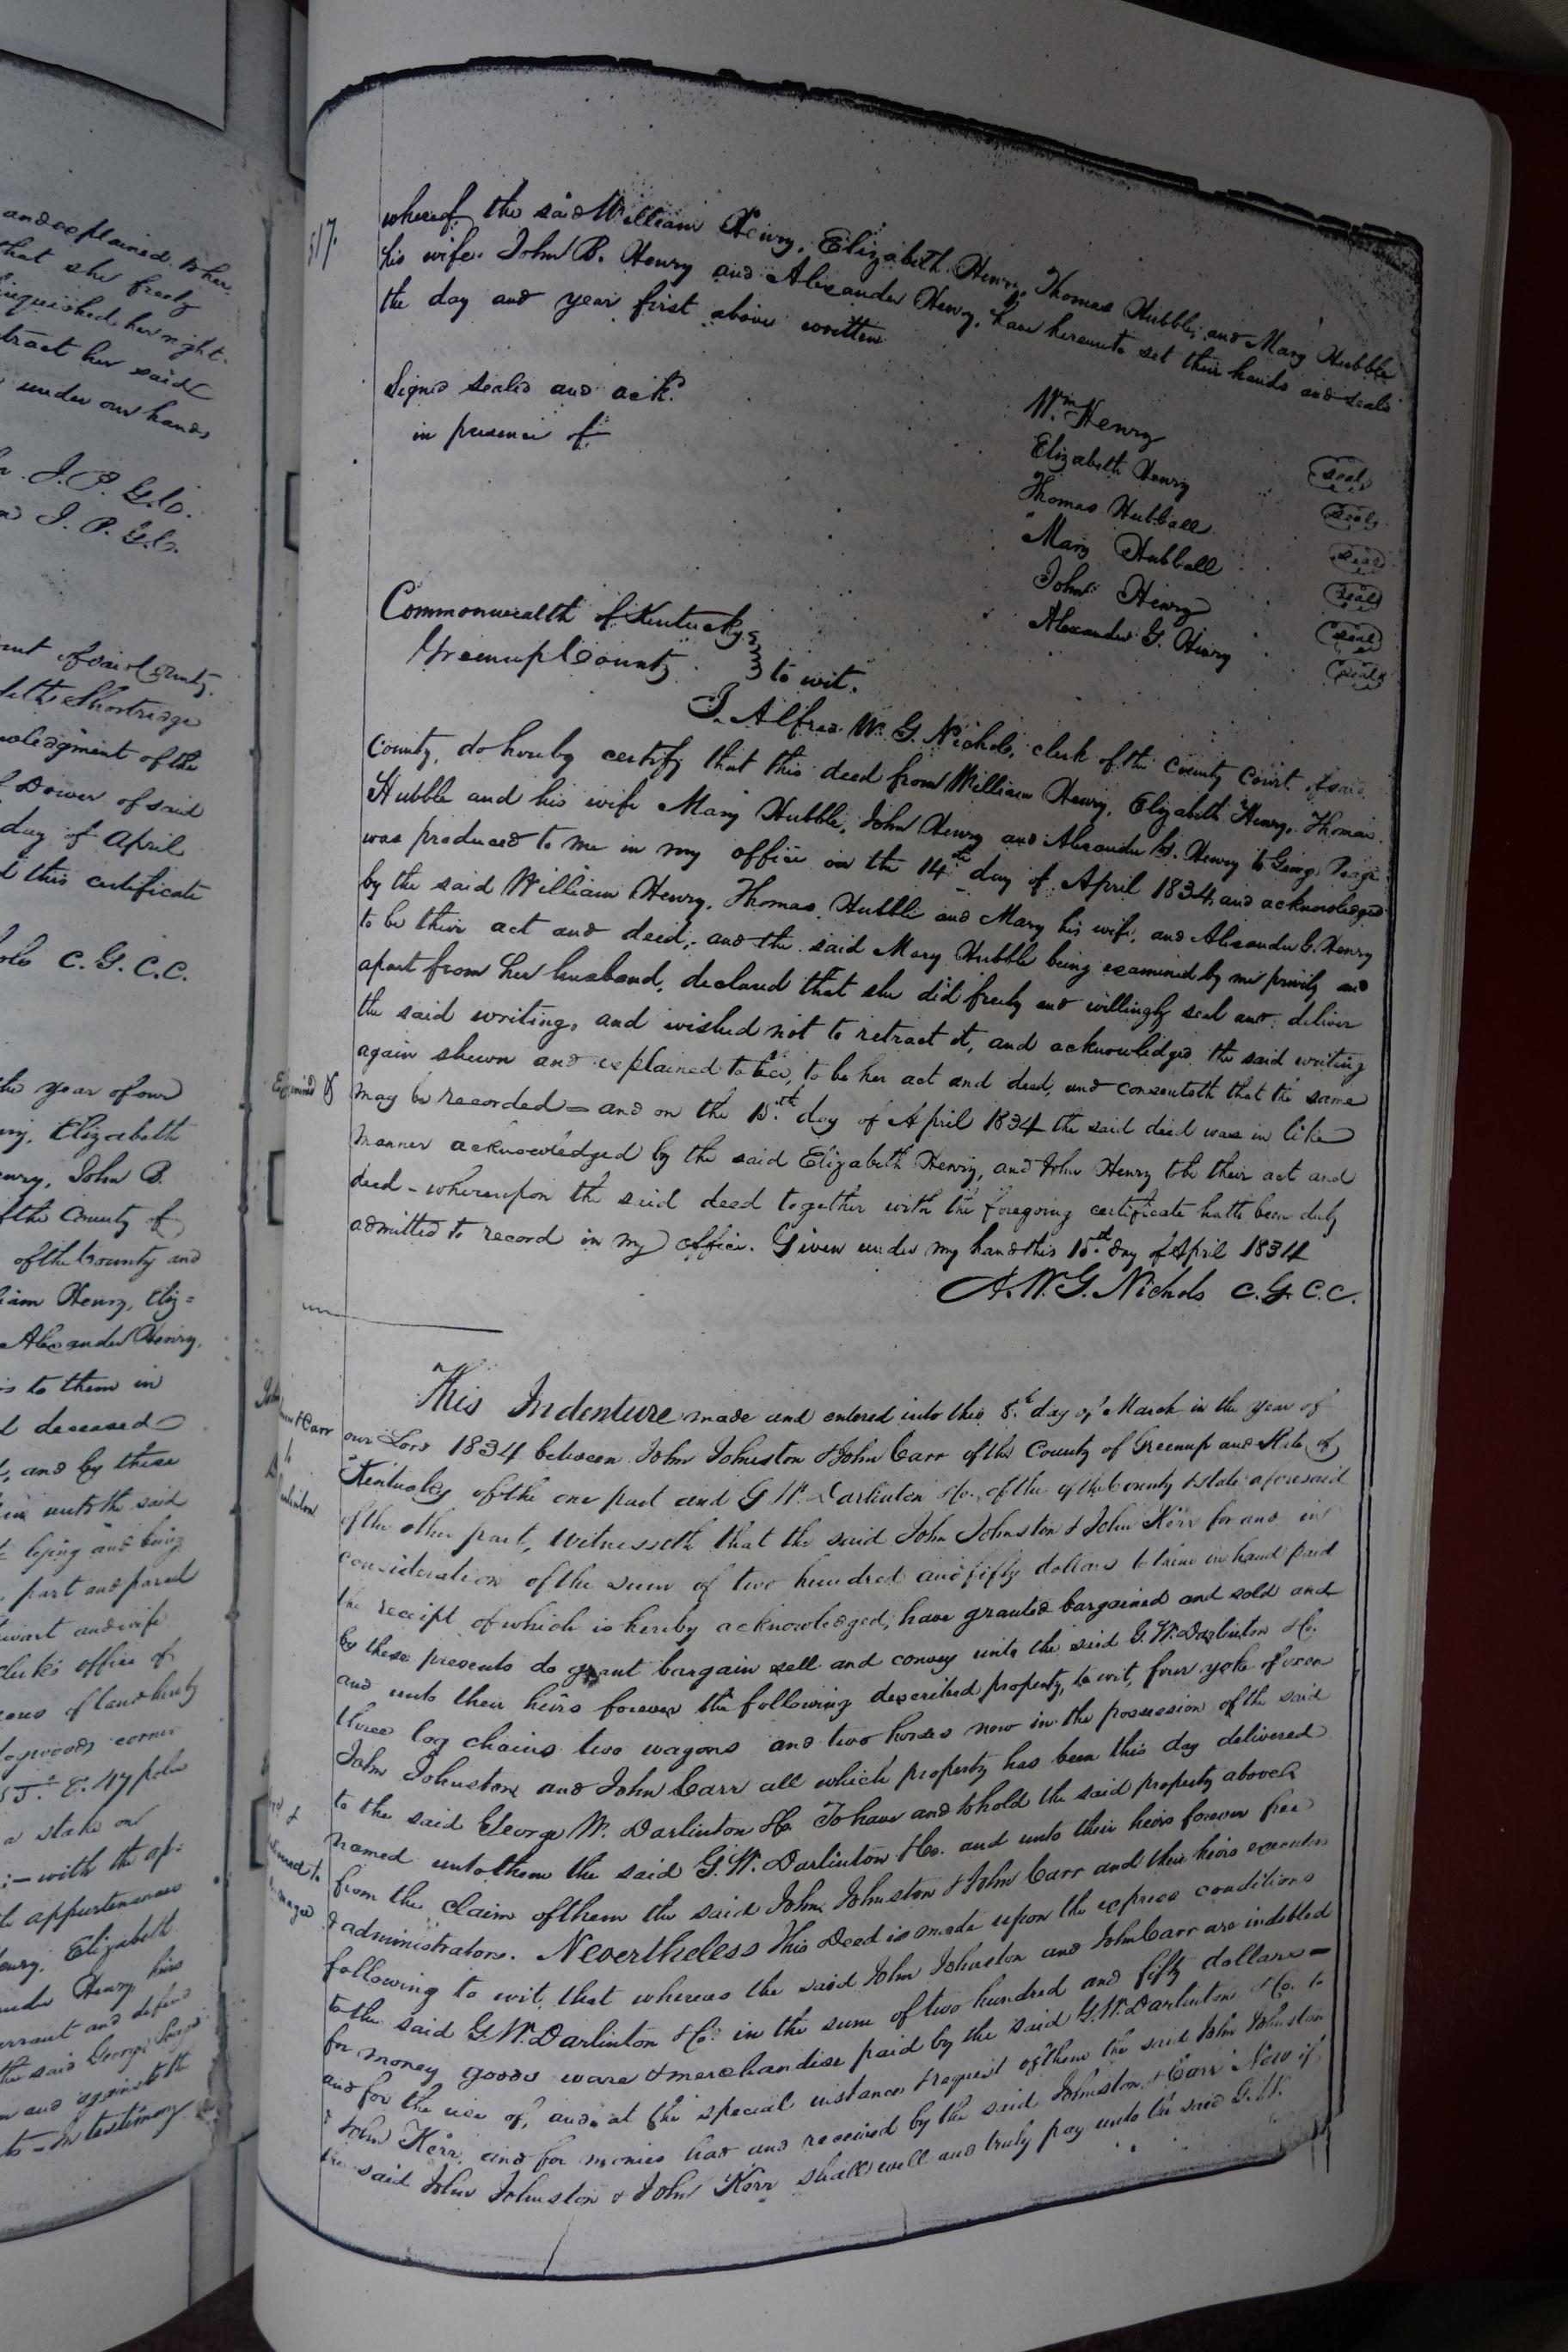 and explained to her
that she freely
linquished her right
tract her said
under our hands
J. P. G. C.
J. P. G. C.
of said County
Shortridge
acknowledgment of the
Dower of said
day of April
this certificate
C. G. C. C.
the year of our
Elizabeth
Henry, John B.
of the County of
of the County and
William Henry, Eliz=
Alexander Henry,
is to them in
deceased
and by these
unto the said
lying and being
part and parcel
and wife
clerks office of
of land
dogwoods corner
E. 47 poles
a stake on
with the ap:
appurtenances
Henry, Elizabeth
Henry his
warrant and defend
the said George
and against the
In testimony
517.
whereof the said William Henry, Elizabeth Henry, Thomas Hubble, and Mary Hubble
his wife John B. Henry and Alexander Henry, have hereunto set their hands and seals
the day and year first above written
Signed sealed and ackd.
in presence of
Wm. Henry (seal)
Elizabeth Henry (seal)
Thomas Hubball (seal)
Mary Hubball (seal)
John Henry (seal)
Alexander G. Henry (seal)
Commonwealth of Kentucky
Greenup County } to wit.
I, Alfred W. G. Nichols, clerk of the County Court of said
County, do hereby certify that this deed from William Henry, Elizabeth Henry, Thomas
Hubble and his wife Mary Hubble, John Henry and Alexander G. Henry to George
was produced to me in my office on the 14th day of April 1834, and acknowledged
by the said William Henry, Thomas Hubble and Mary his wife, and Alexander G. Henry
to be their act and deed; and the said Mary Hubble being examined by me privily and
apart from her husband, declared that she did freely and willingly seal and deliver
the said writing, and wished not to retract it, and acknowledged the said writing
again shewn and explained to her, to be her act and deed, and consenteth that the same
may be recorded = and on the 15th day of April 1834 the said deed was in like
manner acknowledged by the said Elizabeth Henry, and John Henry to be their act and
deed - whereupon the said deed together with the foregoing certificate hath been duly
admitted to record in my office. Given under my hand this 15th day of April 1834
A. W. G. Nichols C. G. C. C.
This Indenture made and entered into this 8th day of March in the year of
our Lord 1834 between John Johnston & John Carr of the County of Greenup and State of
Kentucky of the one part and G W. Darlinton & Co. of the of the County & State aforesaid
of the other part, Witnesseth that the said John Johnston & John Kerr for and in
consideration of the sum of two hundred and fifty dollars to them in hand paid
the receipt of which is hereby acknowledged, have granted bargained and sold and
by these presents do grant bargain sell and convey unto the said G. W. Darlinton & Co.
and unto their heirs forever the following described property, to wit, four yoke of oxen
three log chains two wagons and two horses now in the possession of the said
John Johnston and John Carr all which property has been this day delivered
to the said George W. Darlinton & Co. To have and to hold the said property above
named unto them the said G. W. Darlinton & Co. and unto their heirs forever free
from the claim of them the said John Johnston & John Carr and their heirs executors
& administrators. Nevertheless This Deed is made upon the express conditions
following to wit, that whereas the said John Johnston and John Carr are indebted
to the said G. W. Darlinton & Co. in the sum of two hundred and fifty dollars =
for money goods ware & merchandise paid by the said G. W. Darlinton & Co. to
and for the use of, and at the special instance & request of them the said John Johnston
& John Kerr and for monies had and received by the said Johnston & Carr Now if
the said John Johnston & John Kerr shall well and truly pay unto the said G. W.